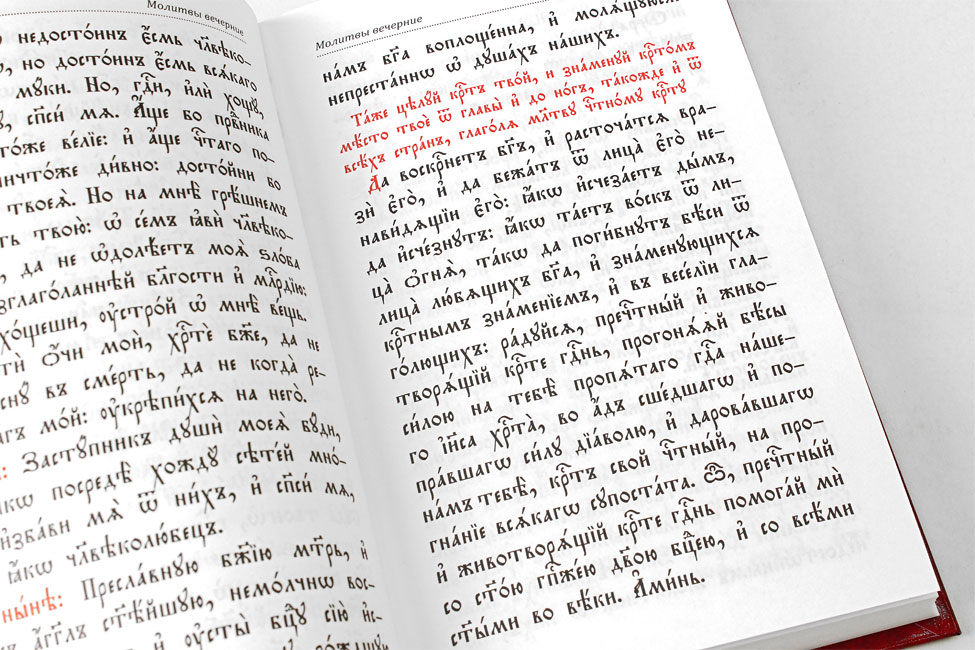 Молитвы вечерние
недосто́инъ є҆́смь чл҃вѣко-
но досто́инъ є҆́смь всѧ́кагѡ
мꙋки. Но, гдⷭ҇и, и҆лѝ хощꙋ,
сп҃си мѧ. А҆́ще во првⷣника
то́же ве́лїе: и҆ а҆́ще чⷭ҇таго по-
ничто́же дивно: досто́йни во
твоеѧ̀. Но на мнѣ̀ грѣшнемъ
твою̀: ѡ҆ се́мъ ꙗ҆вѝ чл҃вѣко-
да не ѡ҆долѣ́етъ моѧ̀ ѕло́ба
глаго́ланнѣй бл҃гости и҆ млⷭ҇рдїю:
хо́щеши, оу҆стро́й ѡ҆ мнѣ̀ ве́щь.
О҆́чи моѝ, хрⷭ҇тѐ бж҃е, да не
въ сме́рть, да не когда̀ ре-
мо́й: оу҆крѣпи́хсѧ на него̀.
Застꙋ́пникъ дꙋшѝ моеѧ̀ бꙋди,
посредѣ̀ хождꙋ̀ сѣте́й мнѡ́-
и҆зба́ви мѧ̀ ѿ ни́хъ, и҆ сп҃си мѧ,
ꙗ҆́кѡ чл҃вѣколю́бецъ.
ны́нѣ: Пресла́внꙋю бж҃їю мт҃рь, и҆
ст҃ѣ́йшꙋю, немо́лчнѡ вос-
а҆́гг҃лъ и҆ оу҆сты̀ бцⷣꙋ сїю̀ и҆с-
Молитвы вечерние
на́мъ бг҃а воплоще́нна, и҆ молѧ́щꙋюсѧ
непреста́ннѡ ѡ҆ дꙋша́хъ на́шихъ.
Та́же цѣлꙋй крⷭ҇тъ тво́й, и зна́менꙋй крⷭ҇то́мъ
мѣ́сто твоѐ ѿ главы̀ и҆ до но́гъ, та́кожде и҆ ѿ
всѣ́хъ стра́нъ, глаго́лѧ мл҃твꙋ чⷭ҇тно́мꙋ крⷭ҇тꙋ
Да воскрⷭ҇нетъ бг҃ъ, и҆ расточа́тсѧ вра-
зѝ є҆гѡ̀, и҆ да бежа́тъ ѿ лица̀ є҆гѡ̀ не-
нави́дѧщїи є҆го̀: ꙗ҆́кѡ и҆счеза́етъ ды́мъ,
да и҆сче́знꙋтъ: ꙗ҆́кѡ та́етъ во́скъ ѿ ли-
ца̀ ѻ҆гнѧ̀, та́кѡ да поги́бнꙋтъ бѣ́си ѿ
лица̀ лю́бѧщихъ бг҃а, и҆ зна́менꙋющихсѧ
крⷭ҇тнымъ зна́менїемъ, и҆ въ весе́лїи гла-
го́лющихъ: ра́дꙋйсѧ, пречⷭ҇тный и҆ живо-
творѧ́щїй крⷭ҇те гдⷭ҇нь, прогонѧ́ѧй бѣ́сы
си́лою на тебѣ̀ пропѧ́таго гдⷭ҇а на́ше-
го і҆и҃са хрⷭ҇та̀, во а҆́дъ сше́дшагѡ и҆ по-
пра́вшагѡ си́лꙋ дїа́волю, и҆ дарова́вшагѡ
на́мъ тебѐ, крⷭ҇тъ сво́й чⷭ҇тны́й, на про-
гна́нїе всѧ́кагѡ сꙋпоста́та. Ѽ, пречⷭ҇тный
и҆ животворѧ́щїй крⷭ҇те гдⷭ҇нь помога́й мѝ
со ст҃о́ю гп҃же́ю дв҃ою бцⷣею, и҆ со всѣ́ми
ст҃ы́ми во вѣ́ки. А҆ми́нь.